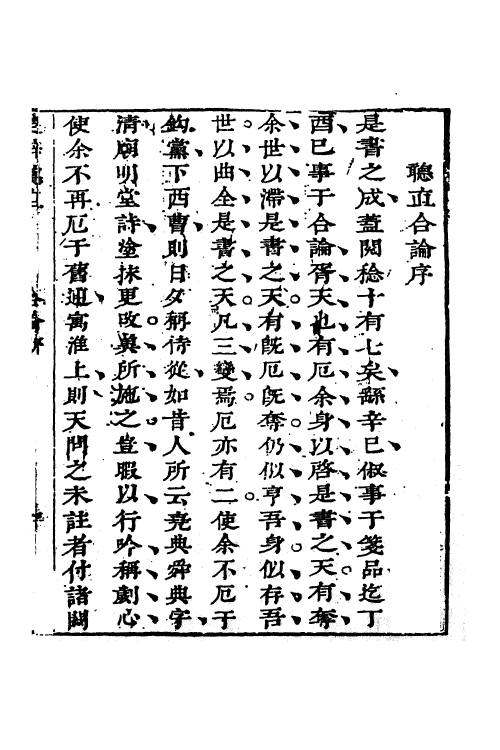 聽直合論序
是書之成蓋閱稔十有七矣繇辛巳俶事于箋品迄丁
酉已事于合論胥天也有厄余身以啓是書之天有奪
余世以滯是書之天有旣厄旣奪仍似亨吾身似存吾
世以曲全是書之天凡三變焉厄亦有二使余不厄于
鈎黨下西曹則日夕稱侍從如昔人所云堯典舜典字
清廟明堂詩塗抹更改奚所施之豈暇以行吟稱劌心
使余不再厄于舊逋寓淮上則天問之未註者付諸闕